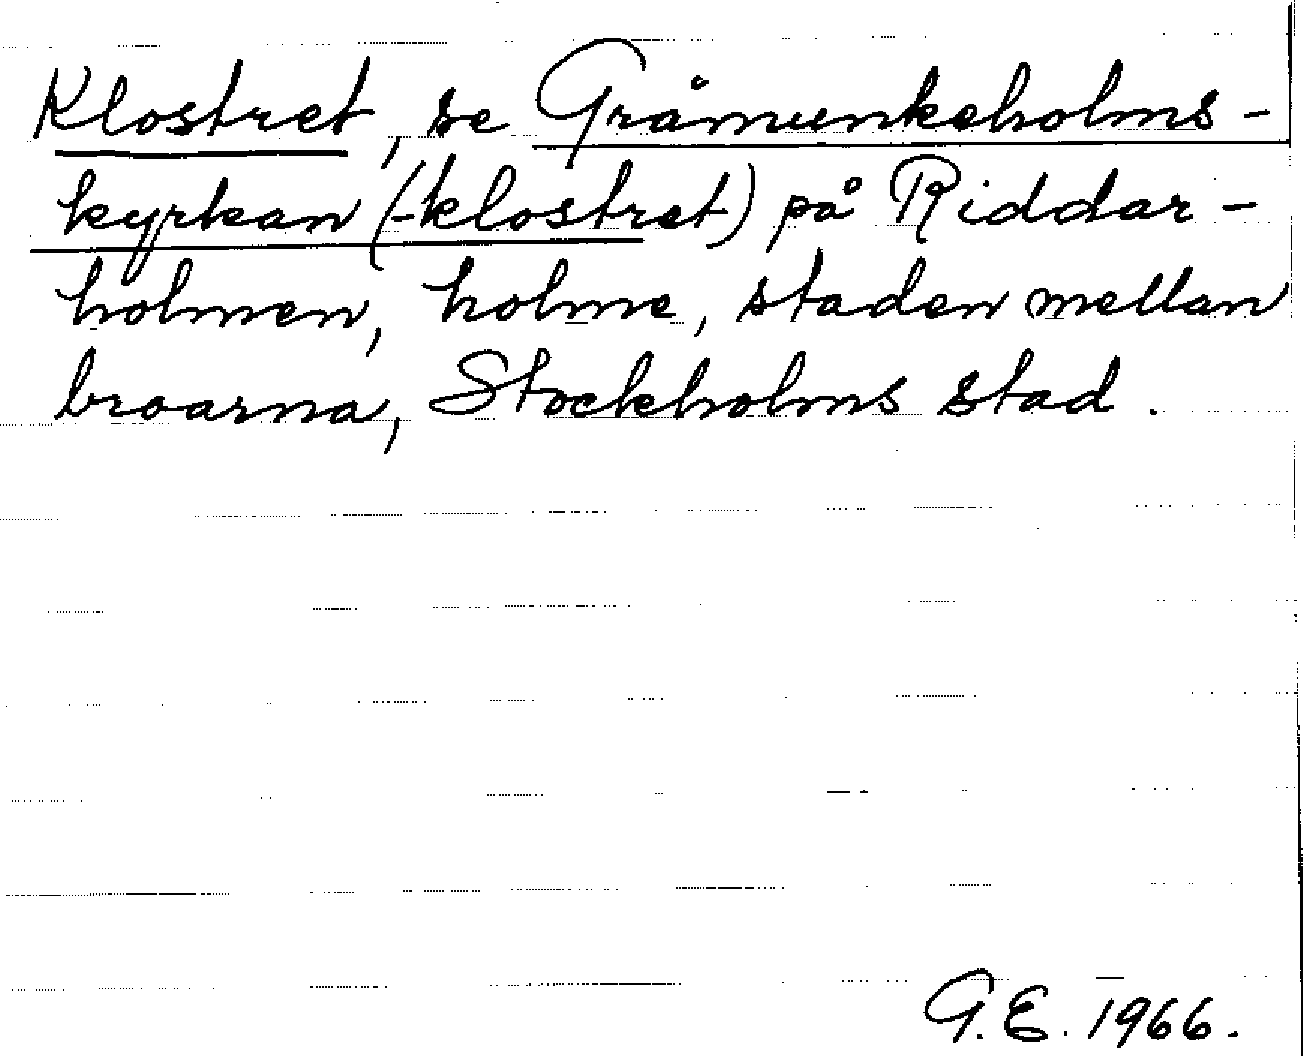 Klostret, se Gråmunkeholms-
kyrkan (-klostret) på Riddar-
holmen, holme, staden mellan
broarna, Stockholms stad.
G.E. 1966.